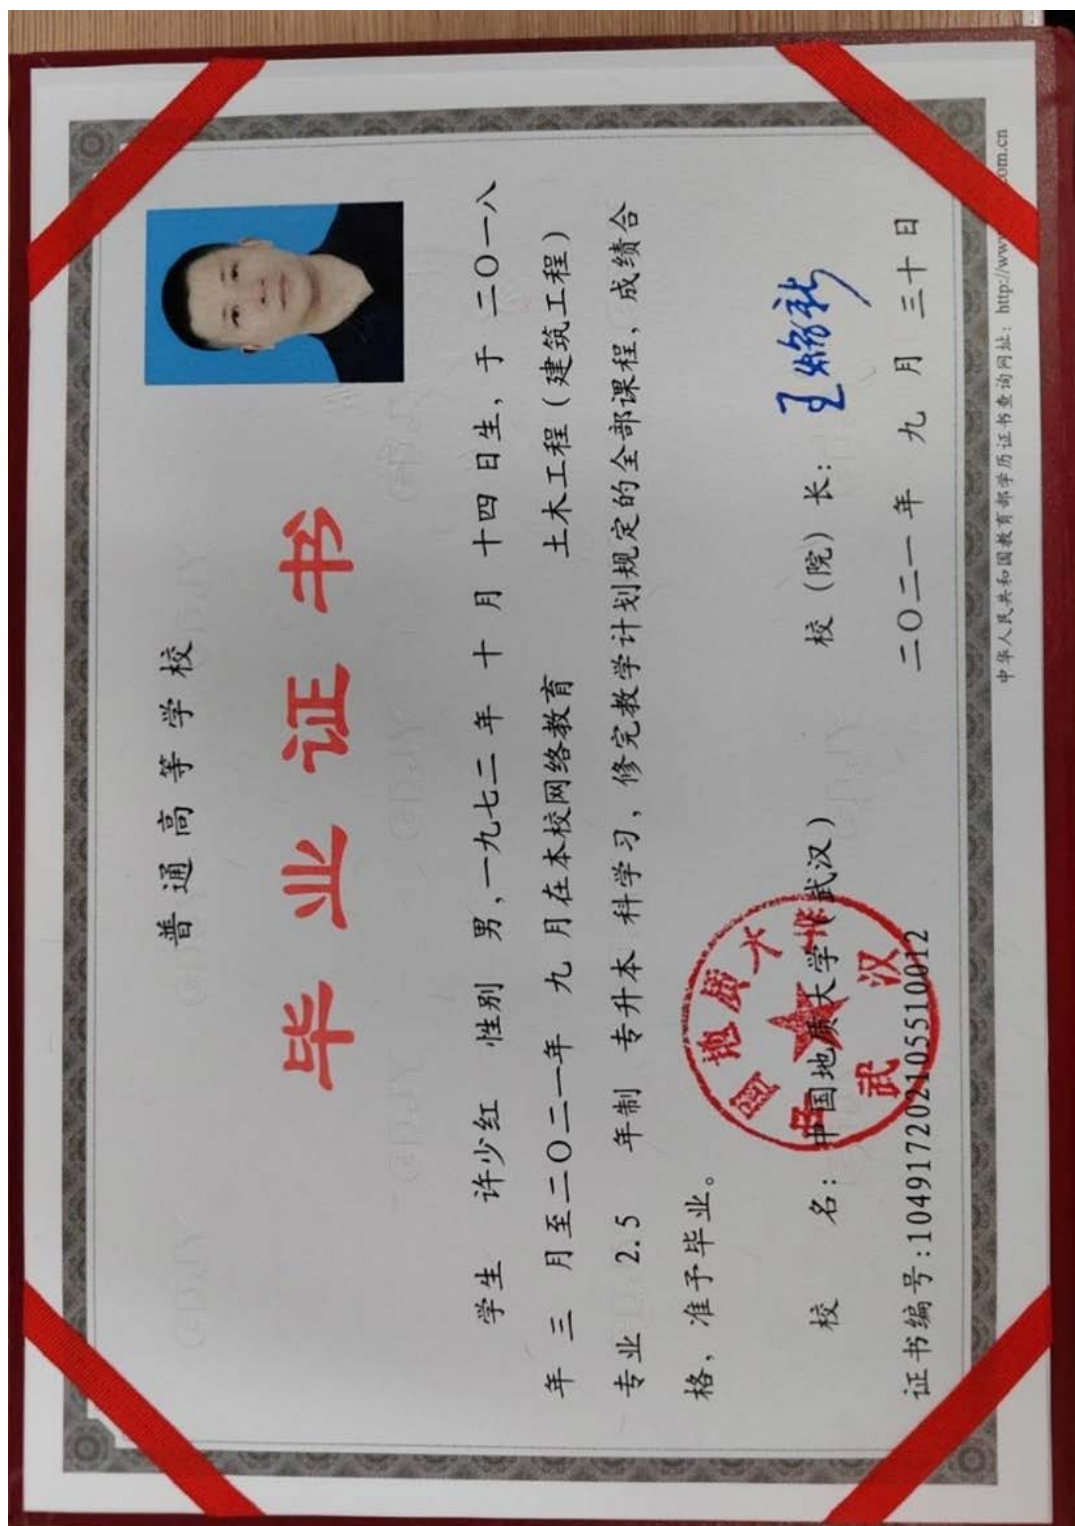 普通高等学校
毕业证书
学生 许少红 性别 男，一九七二年 十 月 十四 日生，于 二〇一八
年 三 月至二〇二一年 九 月在本校网络教育 土木工程（建筑工程）
专业 2.5 年制 专升本 科学习，修完教学计划规定的全部课程，成绩合
格，准予毕业。
校 名：中国地质大学（武汉） 校（院）长：
证书编号:104917202105510012 二〇二一年 九 月 三十 日
中华人民共和国教育部学历证书查询网址：http://www. .com.cn
中国地质大学
武汉